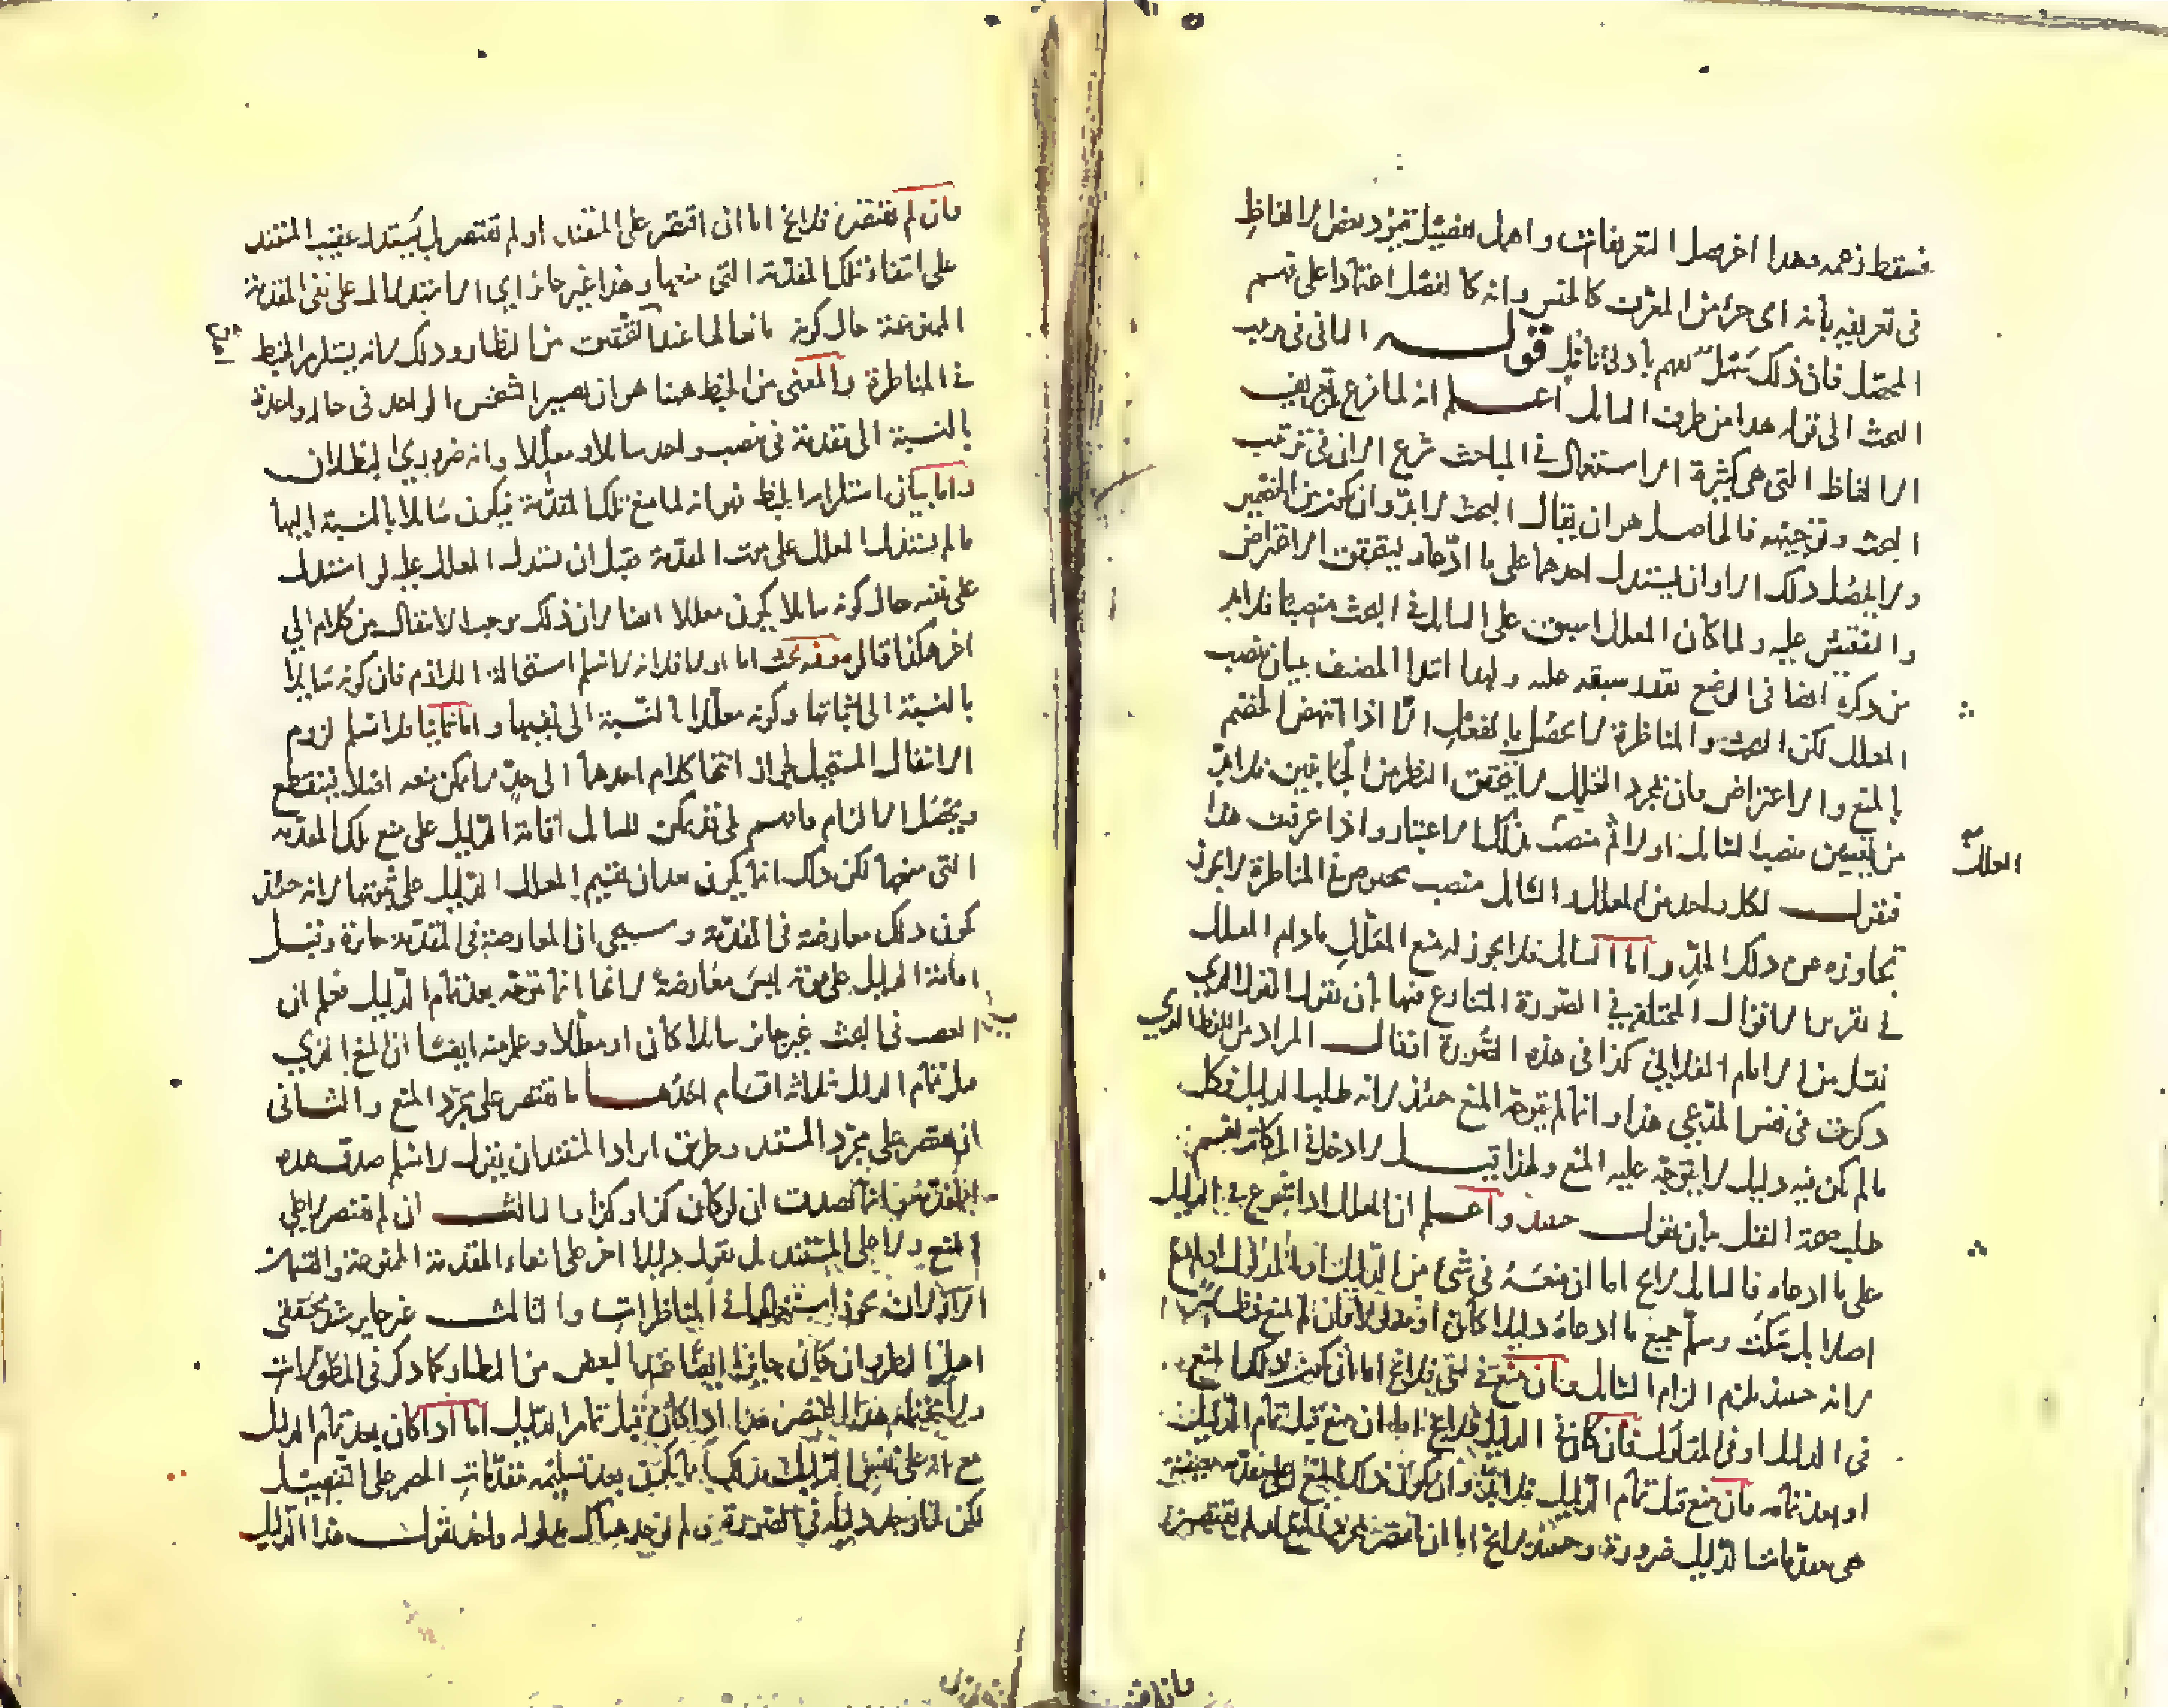 فسقط زعمه وهذا اخر فصل التعريفات واهل تفصيل قيود بعض الالفاظ
في تعريفه بانه اي جزء من المعرف كالجنس وانه كالفصل اعتمادا على فهم
المحصل فان ذلك سهل بادنى تامل قوله الثاني في ترتيب
البحث الى قوله هذا من طرف السائل اعلم انه لما فرغ تعريف
الالفاظ التي هي كثيرة الاستعمال في المباحث شرع الان في ترتيب
البحث وتوجيهه فالحاصل هو ان يقال البحث لا بد وان يكون بين الخصمين
ولا يحصل ذلك الا وان يستدل احدهما على ما ادعاه ليتحقق الاعتراض
والتفتيش عليه ولما كان المعلل اسبق على السائل في البحث منصبا فلا بد
من ذكره ايضا في الوضع تقدد سبقه عليه ولهذا ابتدا المصنف ببيان منصب
المعلل لكن البحث والمناظرة لا يحصل بالفعل الا اذا انتهض الخصم
بالمنع والاعتراض فان بمجرد التعليل لا يتحقق النظر من الجانبين فلا بد
من تعيين منصب السائل اولا ثم منصب المعلل بذلك الاعتبار واذا عرفت هذا
فنقول لكل واحد من المعلل والسائل منصب مخصوص في المناظرة لا يجوز
تجاوزه عن ذلك الحد واما السائل فلا يجوز له منع المعلل ما دام المعلل
في تقرير الاقوال المختلفة في الصورة المتنازع فيها بان يقول القول الذي
نقل من الامام الفلاني كذا في هذه الصورة اذ قال المراد من اللفظ الذي
ذكرت في نفس المدعي هذا وانما لم يتوجه المنع حينئذ لانه طلب الدليل فكل
ما لم يكن فيه دليل لا يتوجه عليه المنع ولهذا قيل لا دخل في الحكايات
طلب صحة النقل بان يقول حينئذ واعلم ان المعلل اذا شرع في الدليل
على ما ادعاه فالسائل لا يخ اما ان يمنعه في شيء من الدليل او المدلول او لم يمنع
اصلا بل سكت وسلم جميع ما ادعاه دليلا كان او مدلولا فان لم يمنع فظاهر
لانه حينئذ يلزم الزام السائل وان منع في شيء فلا يخ اما ان يكون ذلك المنع
في الدليل او في المدلول فان كان في الدليل فلا يخ اما ان منع قبل تمام الدليل
او بعد تمامه فان منع قبل تمام الدليل فلا بد وان يكون ذلك المنع على مقدمة معينة
هي مقدمات الدليل ضرورة وحينئذ لا يخ اما ان يقتصر بمجرد المنع او لم يقتصر
فان لم يقتصر فلا يخ اما ان اقتصر على السند او لم يقتصر بل يستدل عقيب السند
على انتفاء تلك المقدمة التي منعها وهذا غير جائز اي الاستدلال على نفي المقدمة
الممنوعة حال كونه مانعا لها عند المحققين من النظار وذلك لانه يستلزم الخبط
في المناظرة والمعنى من الخبط ههنا هو ان يصير الشخص الواحد في حالة واحدة
بالنسبة الى مقدمة في منصب واحد سائلا ومعللا وانه ضروري البطلان
واما بيان استلزام الخبط فهو انه لما منع تلك المقدمة فيكون سائلا بالنسبة اليها
ما لم يستدل المعلل على صحت المقدمة فقبل ان يستدل المعلل عليه لو استدل
على نفيه حال كونه سائلا يكون معللا ايضا لان ذلك موجب الانتقال من كلام الى
اخر هكذا قالوا وفيه بحث اما اولا فلانه لا نسلم استحالة اللازم فان كونه سائلا
بالنسبة الى اثباتها وكونه معللا بالنسبة الى نفيها واما ثانيا فلا نسلم لزوم
الانتقال المستحيل لجواز انتهاء كلام احدهما الى حد لا يمكن منعه اصلا فينقطع
ويحصل الالزام فافهم لكن يمكن للسائل اقامة الدليل على منع تلك المقدمة
التي منعها لكن ذلك انما يكون بعد ان يقيم المعلل الدليل على ثبوتها لانه حينئذ
يكون ذلك معارضة في المقدمة وسيجي ان المعارضة في المقدمة جائزة وقيل
اقامة الدليل على منعه ليس معارضة لانها انما تتوجه بعد تمام الدليل فعلم ان
الغصب في البحث غير جائز سائلا كان او معللا وعلم منه ايضا ان المنع الذي
قبل تمام الدليل ثلاثة اقسام احدها ما يقتصر على مجرد المنع والثاني
ان يقتصر على مجرد السند وطريق ايراد السند ان يقول لا نسلم صدق هذه
المقدمة وانما تصدق ان لو كان كذا وكذا والثالث ان لم يقتصر لا على
المنع ولا على السند بل يقول دليلا اخر على انتفاء المقدمة الممنوعة والقسمان
الاولان يجوز استعمالهما في المناظرات والثالث غير جائز عند محققي
اهل النظر وان كان جائزا ايضا عند البعض من النظار كما ذكر في المطولات
ولا يحتمله هذا المختصر هذا اذا كان قبل تمام الدليل اما اذا كان بعد تمام الدليل
منع انه على نفس الدليل بذلك بان يكون بعد تسليمه مقدمات الخصم على التفصيل
لكن لما وجد دليله في الصورة ولم يوجد هناك مدلوله واحد يقول هذا الدليل